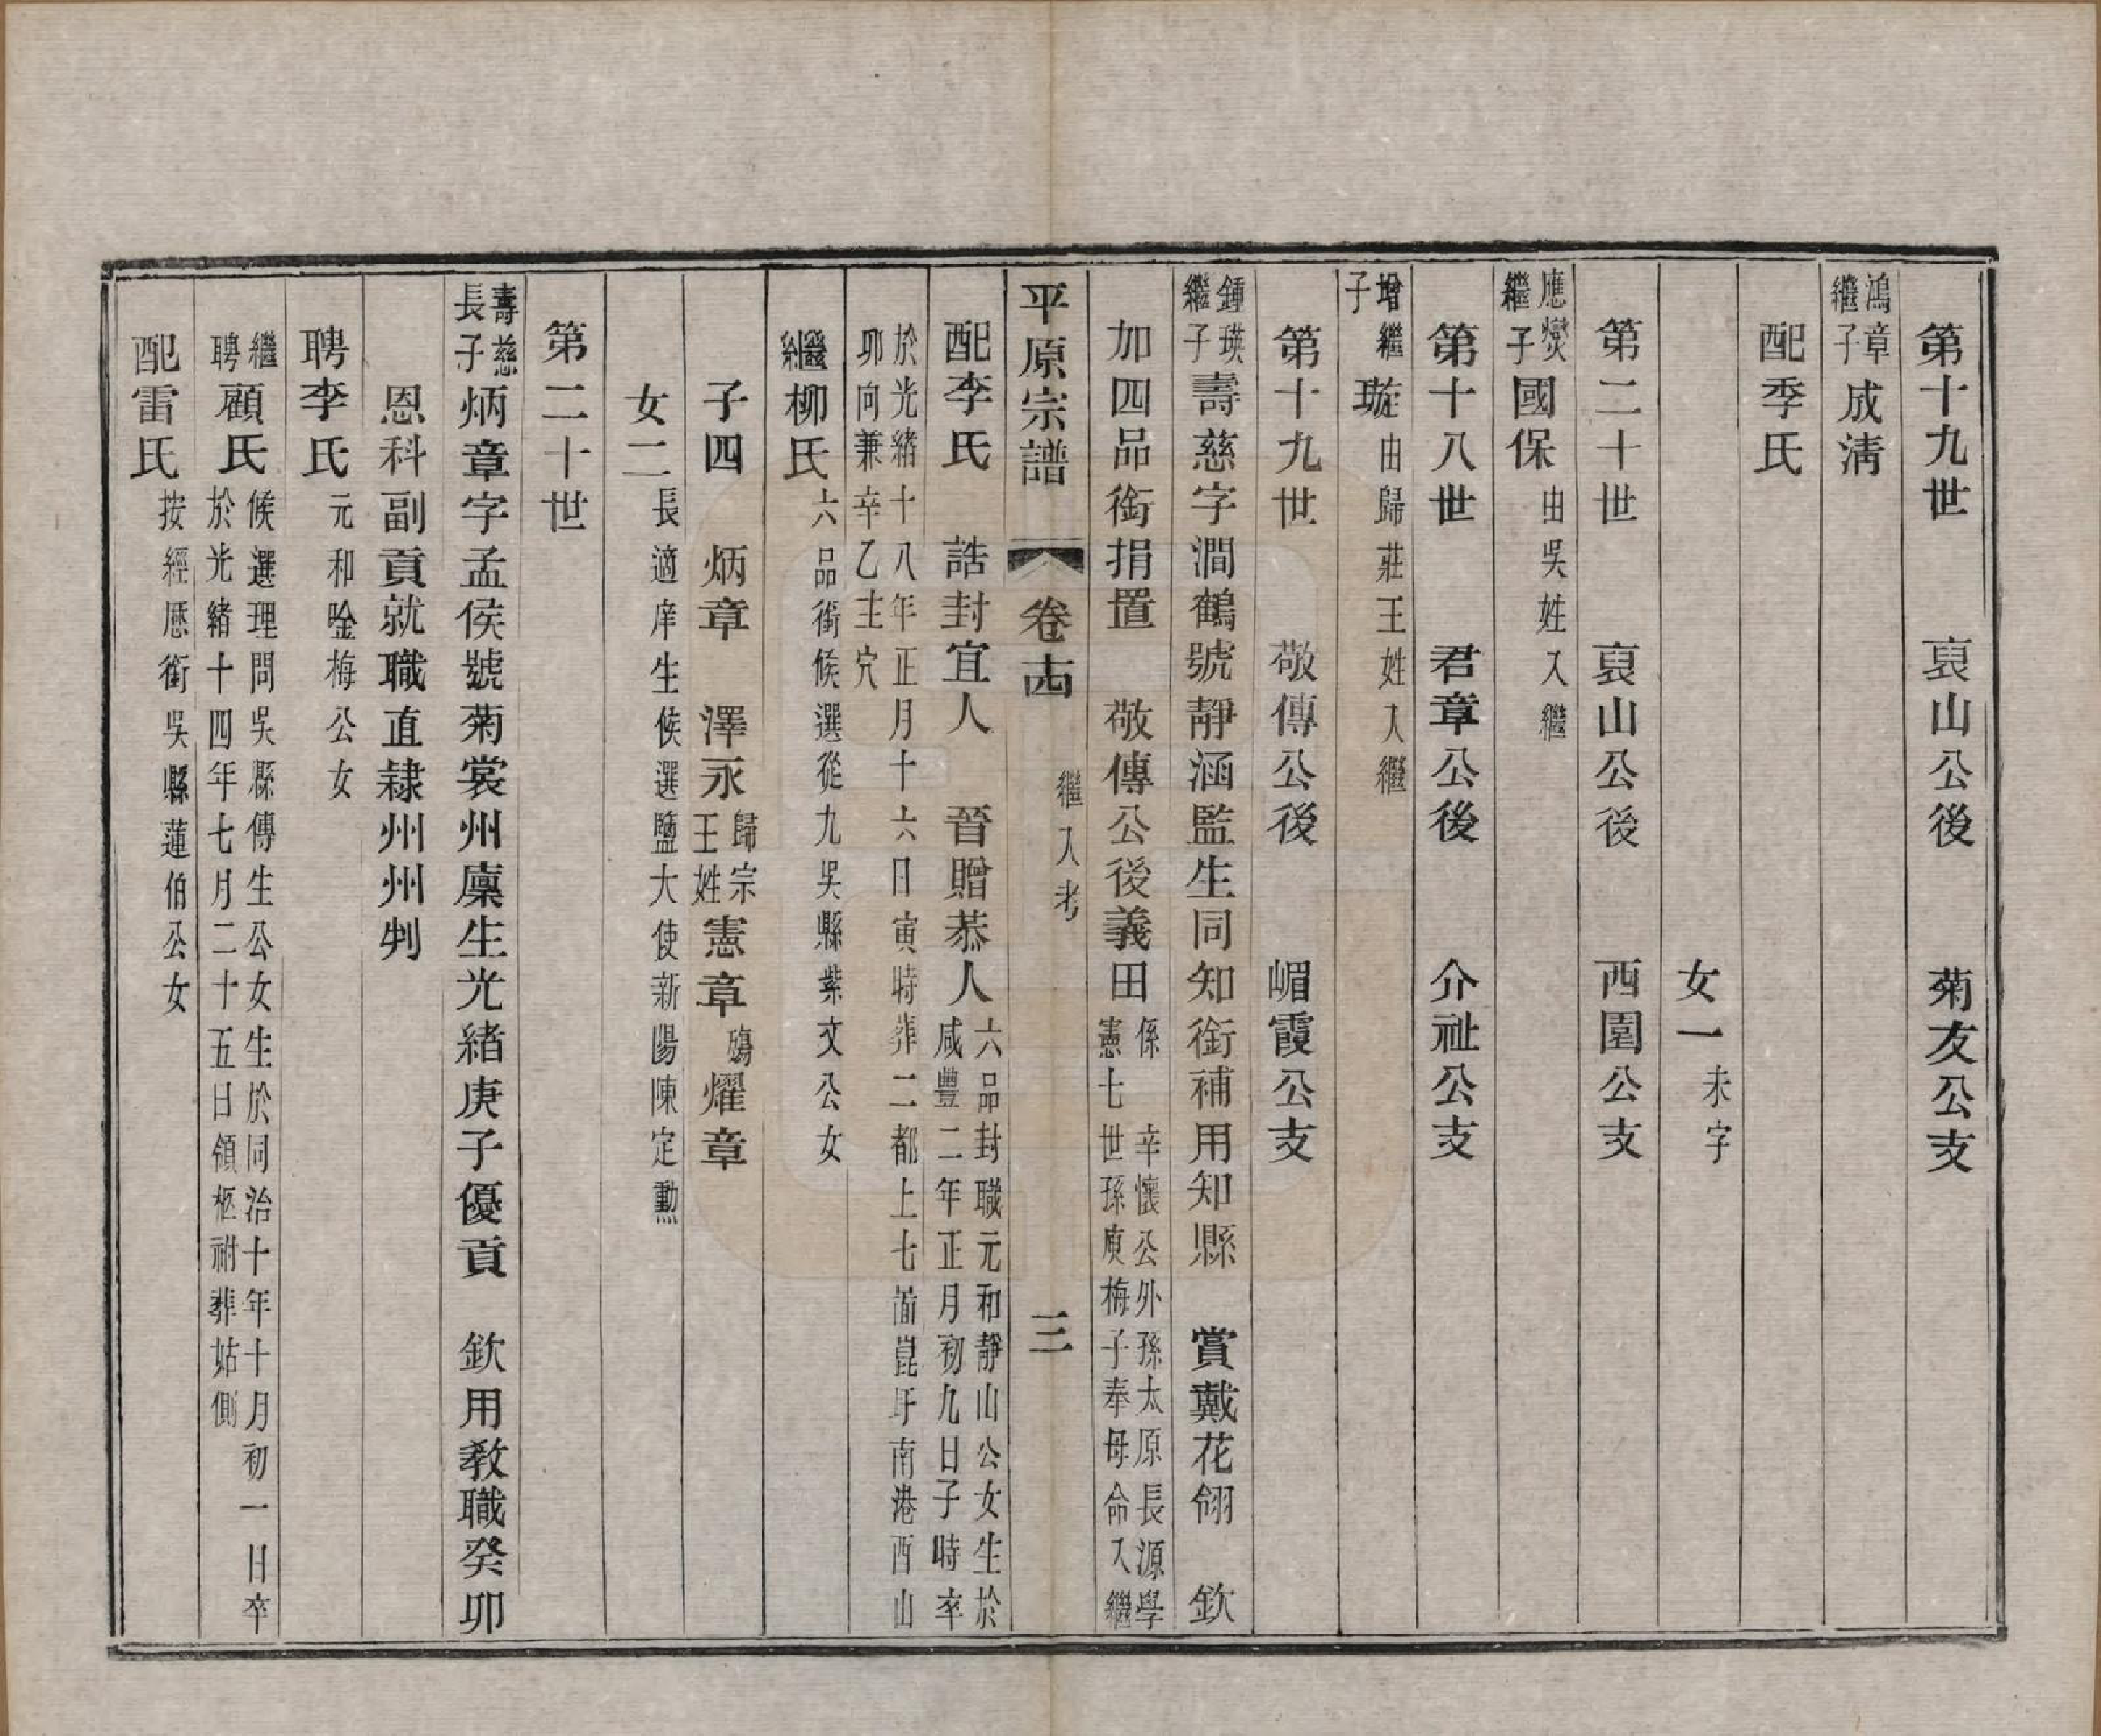 第十九世　裒山公後　菊友公支
鴻章繼子成淸
配季氏
女一未字
第二十世　裒山公後　西園公支
應爕繼子國保由吳姓入繼
第十八世　君章公後　介祉公支
增繼子璇由歸莊王姓入繼
第十九世　敬傳公後　嵋霞公支
鍾瑛繼子壽慈字澗鶴號靜涵監生同知銜補用知縣　賞戴花翎　欽
加四品銜捐置　敬傳公後義田係憲七辛懷公外孫太原長源學世孫庾梅子奉母命入繼
平原宗譜　卷十四　繼入考　三
配李氏　誥封宜人　晉贈恭人六品封職元和靜山公女生於咸豐二年正月初九日子時卒
於光緒十八年正月十六日寅時葬二都上七啚崑圩南港西山
卯向兼辛乙主穴
繼柳氏六品銜候選從九吳縣紫文公女
子四　炳章　澤永歸宗王姓憲章殤燿章
女二長適庠生候選鹽大使新陽陳定勳
第二十世
壽慈長子炳章字孟侯號菊裳州廩生光緒庚子優貢　欽用敎職癸卯
恩科副貢就職直隸州州判
聘李氏元和唫梅公女
繼聘顧氏候選理問吳縣傳生公女生於同治十年十月初一日卒於光緒十四年七月二十五日領柩祔葬姑側
配雷氏按經歷銜吳縣蓮伯公女